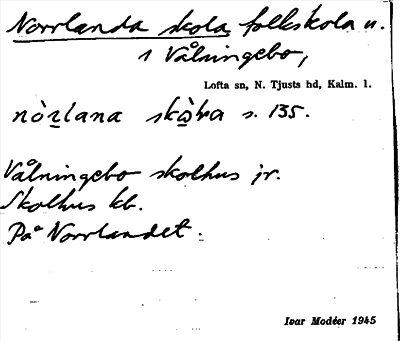 Norrlanda skola, folkskola u.
i Vålningebo,
Lofta sn, N. Tjusts hd, Kalm. l.
nòrlana skò̱la s. 135.
Vålningebo skolhus jr.
Skolhus kb.
På Norrlandet.
Ivar Modéer 1945